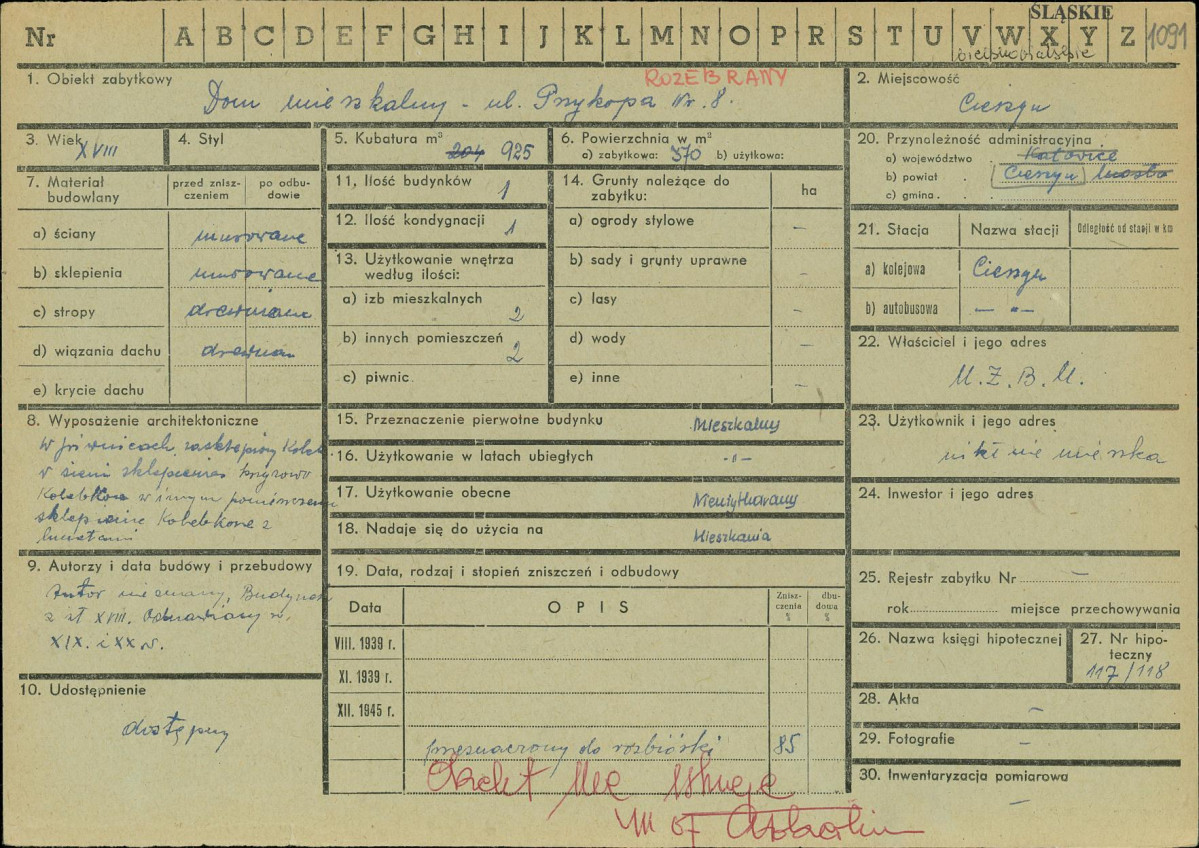 ŚLĄSKIE
Nr A B C D E F G H I J K L M N O P R S T U V W X Y Z 1091
ROZEBRANY
1. Obiekt zabytkowy
Dom mieszkalny - ul. Przykopa Nr. 8.
2. Miejscowość
Cieszyn
3. Wiek
XVIII
4. Styl
5. Kubatura m³
204 925
6. Powierzchnia w m²
a) zabytkowa: 370 b) użytkowa:
20. Przynależność administracyjna
a) województwo . Katowice
b) powiat . Cieszyn miasto
c) gmina . .
7. Materiał budowlany
przed zniszczeniem
po odbudowie
a) ściany murowane
b) sklepienia murowane
c) stropy drewniane
d) wiązania dachu drewnian
e) krycie dachu
11, Ilość budynków 1
12. Ilość kondygnacji 1
13. Użytkowanie wnętrza
według ilości:
a) izb mieszkalnych 2
b) innych pomieszczeń 2
c) piwnic
14. Grunty należące do
zabytku:
ha
a) ogrody stylowe -
b) sady i grunty uprawne -
c) lasy -
d) wody -
e) inne -
21. Stacja
Nazwa stacji
Odległość od stacji w km
a) kolejowa Cieszyn
b) autobusowa — „ —
22. Właściciel i jego adres
M. Z. B. M.
8. Wyposażenie architektoniczne
W piwnicach zasklepiony Koleb
w sieni sklepienie krzyżowo
Kolebkowe w innym pomieszczeniu
sklepienie Kolebkone z
lunetami
15. Przeznaczenie pierwotne budynku Mieszkalny
16. Użytkowanie w latach ubiegłych -„-
17. Użytkowanie obecne Nieużytkowany
18. Nadaje się do użycia na Mieszkania
23. Użytkownik i jego adres
nikt nie mieszka
24. Inwestor i jego adres
9. Autorzy i data budowy i przebudowy
Autor nieznany, Budynek
z XVIII. Odnawiany w
XIX. i XX w.
10. Udostępnienie
dostępny
19. Data, rodzaj i stopień zniszczeń i odbudowy
Data
OPIS
Zniszczenia %
dbudowa %
VIII. 1939 r.
XI. 1939 r.
XII. 1945 r.
przeznaczony do rozbiórki 85
Obiekt nie istnieje
25. Rejestr zabytku Nr —
rok miejsce przechowywania
26. Nazwa księgi hipotecznej
27. Nr hipoteczny
117/118
28. Akta —
29. Fotografie —
30. Inwentaryzacja pomiarowa
—